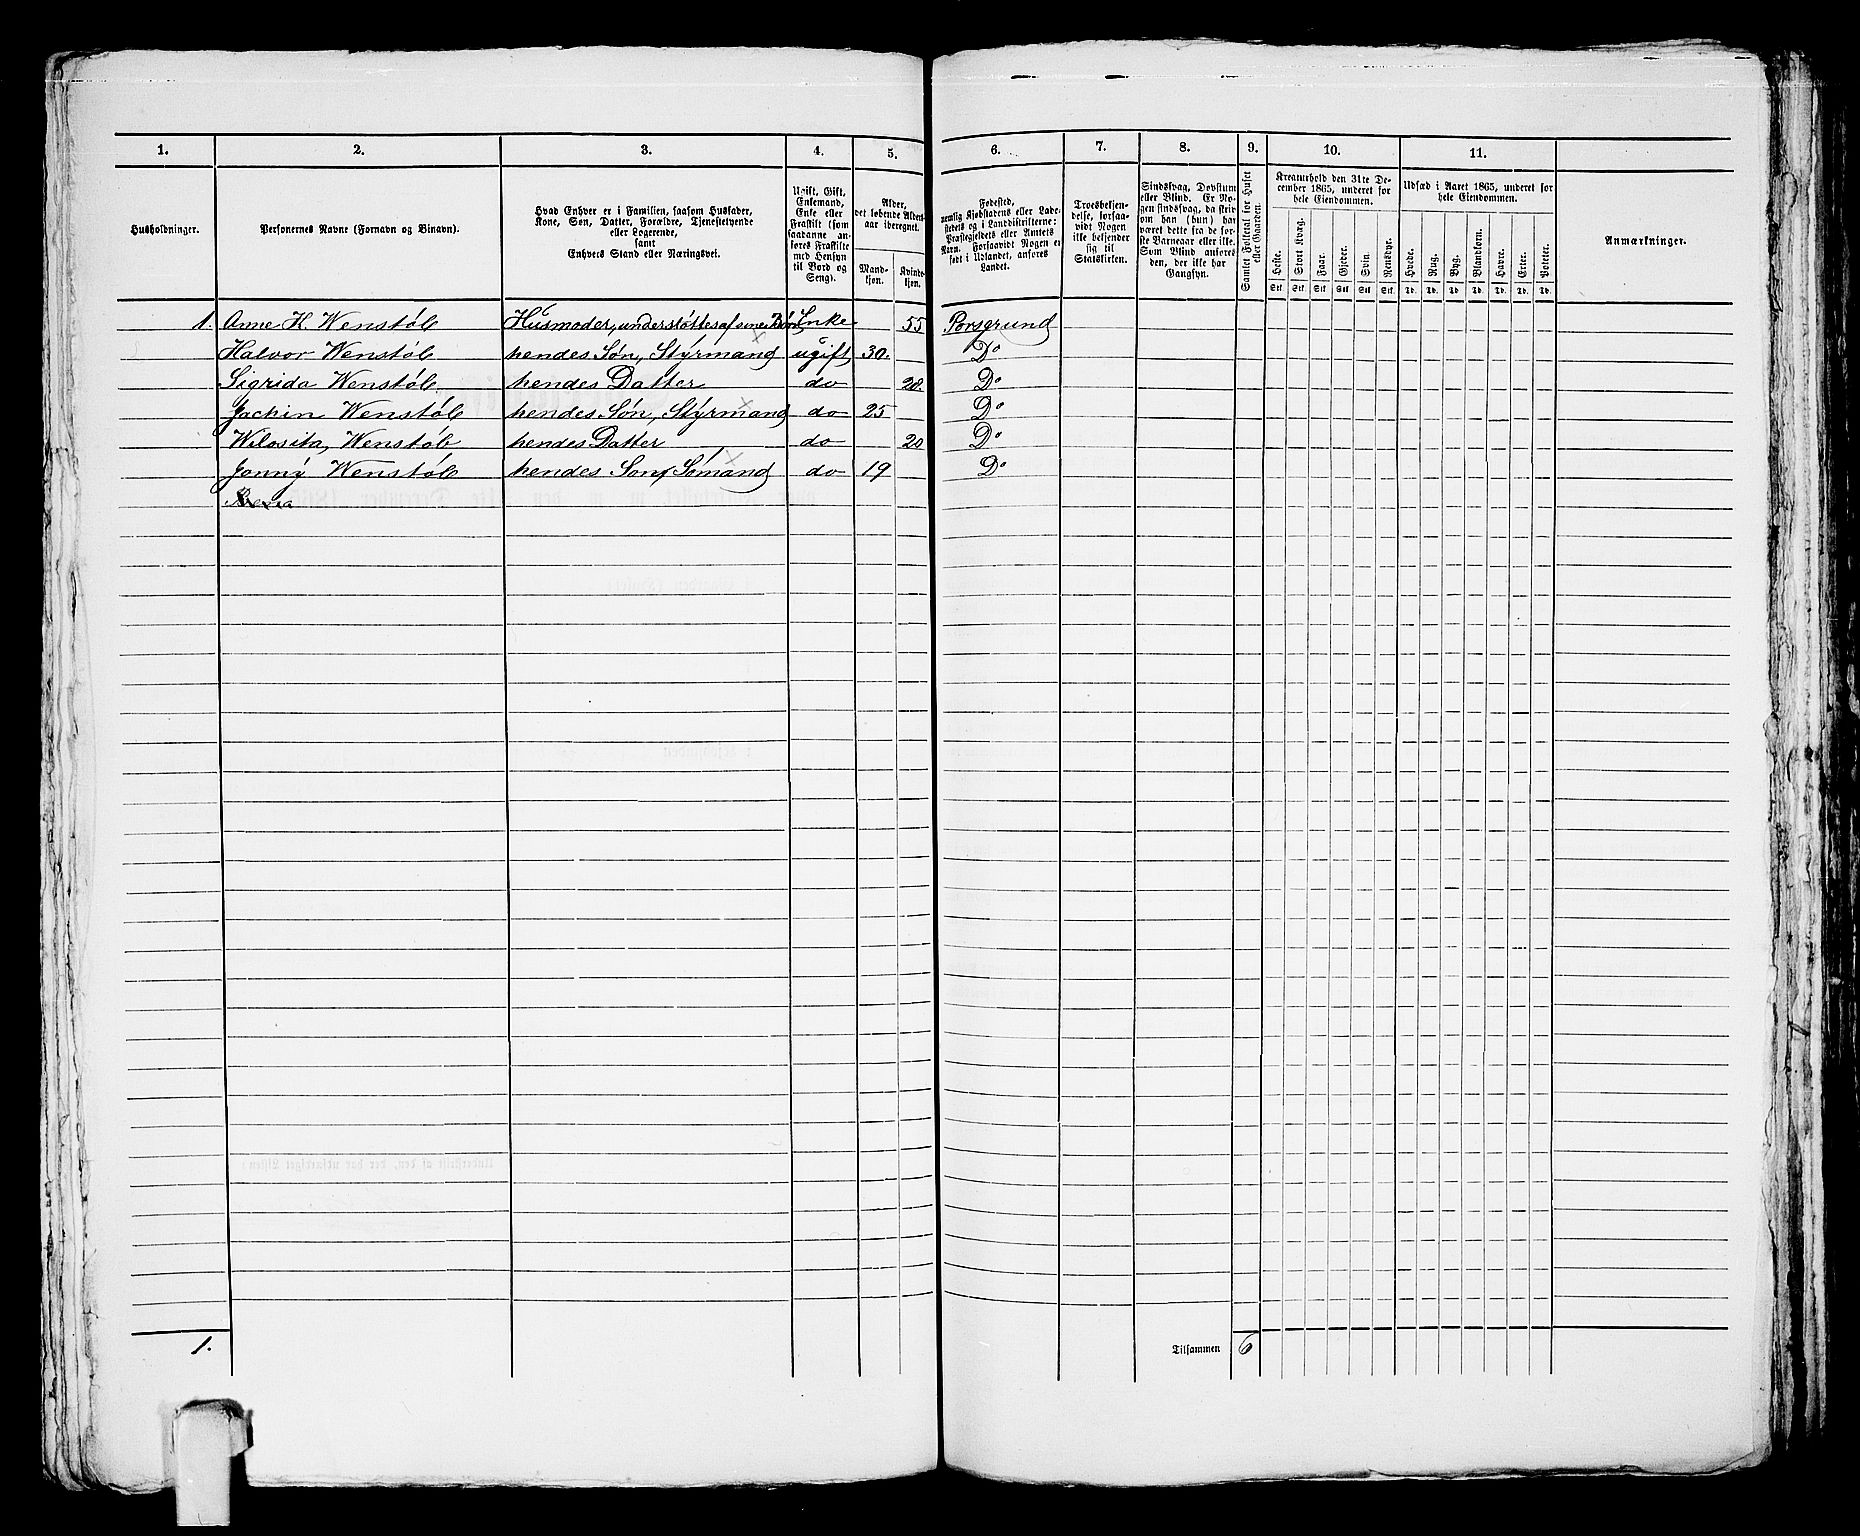 1. 2. 3. 4. 5. 6. 7. 8. 9. 10. 11.
Husholdninger.
Personernes Navne (Fornavn og Binavn).
Hvad Enhver er i Familien, saasom Husfader,
Kone, Søn, Datter, Forældre, Tjenestetyende
eller Logerende,
samt
Enhvers Stand eller Næringsvei.
Ugift, Gift,
Enkemand,
Enke eller
Fraskilt (som
saadanne an-
føres Fraskilte
med Hensyn
til Bord og
Seng).
Alder,
det løbende Alders-
aar iberegnet.
Mand-
kjøn.
Kvinde-
kjøn.
Fødested,
nemlig Kjøbstadens eller Lade-
stedets og i Landdistrikterne:
Præstegjeldets eller Amtets
Navn. Forsaavidt Nogen er
født i Udlandet, anføres
Landet.
Troesbekjen-
delse, forsaa-
vidt Nogen
ikke bekjender
sig til
Statskirken.
Sindssvag, Døvstum
eller Blind. Er No-
gen sindssvag, da skriv
om han (hun) har
været dette fra de før-
ste Barneaar eller ikke.
Som Blind anføres
den, der ikke har
Gangsyn.
Samlet Folketal for Huset
eller Gaarden.
Kreaturhold den 31te De-
cember 1865, underet for
hele Eiendommen.
Heste. Stort Kvæg. Faar. Gjeder. Svin. Rensdyr.
Stk. Stk. Stk. Stk. Stk. Stk.
Udsæd i Aaret 1865, underet for
hele Eiendommen.
Hvede. Rug. Byg. Blandkorn. Havre. Erter. Poteter.
Td. Td. Td. Td. Td. Td. Td.
Anmærkninger.
1. Anne K. Wenstöb Husmoder, understöttes af sine Börn Enke 55 Porsgrund
Halvor Wenstöb hendes Søn, Styrmand ugift 30. Do
Sigrida Wenstöb hendes Datter do 28. Do
Jachin Wenstöb hendes Søn, Styrmand do 25 Do
Wilosita Wenstöb hendes Datter do 20 Do
Jonny Wenstöb hendes Søn Sömand do 19 Do
1. Tilsammen 6